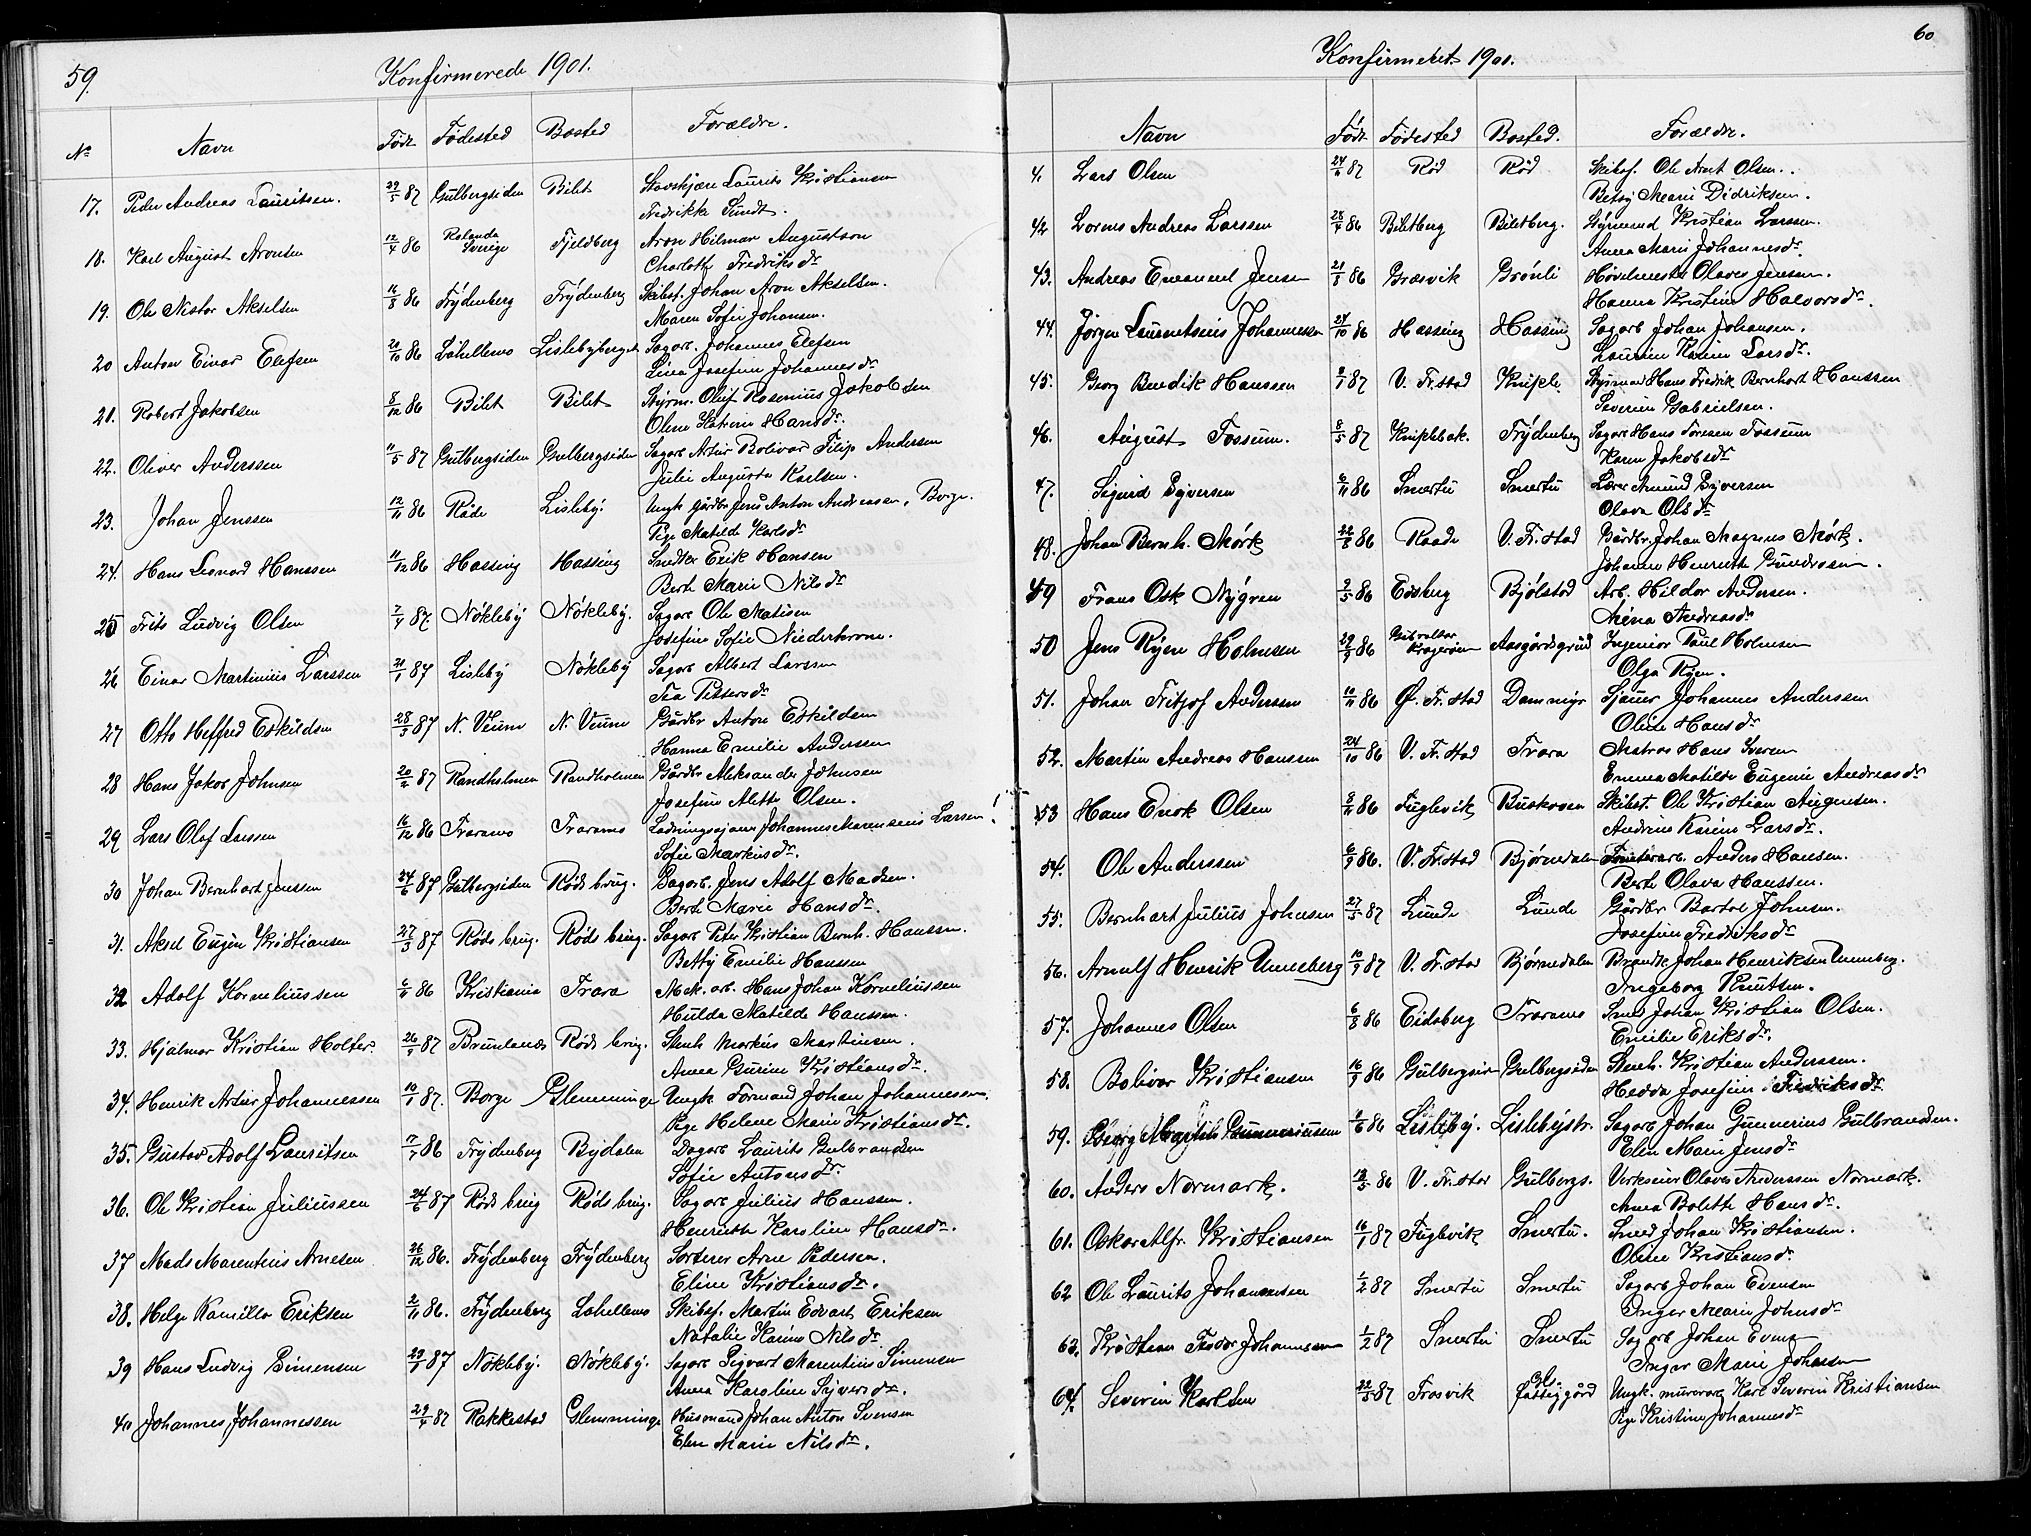 59.
Konfirmerede 1901.
No Navn Født Fødested Bosted Forældre.
17. Peder Andreas Lauritsen. 29/5 87 Gulbergsiden Bilet Skovskjære Laurits Kristiansen
Fredrikke Sundt.
18. Karl August Aronsen 12/4 86 Rolanda Sverige Fjeldberg Aron Hilmar Augustson
Charlotte Fredriksdr
19. Ole Nestor Akselsen 16/8 86 Frydenberg Frydenberg Skibst. Johan Aron Akselsen.
Maren Sofie Johansen.
20 Anton Einar Elefsen 20/10 86 Lahellemo Lislebyberget Sagarb. Johannes Elefsen
Lina Josefine Johannesdr
21. Robert Jakobsen 8/12 86 Bilet Bilet Styrm. Oluf Rosenius Jakobsen
Olene Katrine Hansdr.
22. Oliver Anderssen 11/5 87 Gulbergsiden Gulbergsiden Sagarb Artur Bolivar Filip Andersen
Julie Augusta Karlsen.
23. Johan Jenssen 12/11 86 Råde Lisleby. Ungk gårdbr Jens Anton Andreassen, Borge.
Pige Matilde Karlsdr
24. Hans Leonard Hanssen 11/12 86 Hassing Hassing Snedker Erik Hansen
Berte Marie Nilsdr
25 Frits Ludvig Olsen 7/4 87. Nökleby Nökleby. Sagarb Ole Matisen
Josefine Sofie Niederkrone.
26 Einar Martinius Larssen 21/1 87 Lisleby Nökleby Sagarb Albert Larssen
Tea Pettersdr
27 Otto Heffred Eskildsen 28/3 87 N. Veum N. Veum Gårdbr Anton Eskildsen
Hanna Emilie Anderssen
28 Hans Jakob Johnsen 20/2 87 Randholmen Randholmen Gårdbr Aleksander Johnsen
Josefine Alette Olsen.
29 Lars Olaf Larssen 16/12 86 Traramo Traramo Ladningssjauer Johannes Marensius Larsen.
Sofie Markusdr.
30 Johan Bernhart Jenssen 24/6 87 Gulbergsiden Røds brug. Sagarb. Jens Adolf Madsen.
Berte Marie Hansdr.
31. Aksel Eugen Kristiansen 27/3 87 Røds brug. Røds brug. Sagarb Peter Kristian Bernh. Hanssen.
Betty Emilie Hanssen
32 Adolf Korneliussen 6/11 86 Kristiania Trara Mek. arb. Hans Johan Korneliussen
Hulda Matilde Hanssen.
33. Hjalmar Kristian Holter. 26/9 87 Brunlanæs Røds brug. Stenh Markus Martinsen.
Anna Gurine Kristiansdr.
34. Henrik Artur Johannessen 10/1 87. Borge Glemminge Ungk Formand Johan Johannessen.
Pige Helene Marie Kristiansdr.
35. Gustav Adolf Lauritsen 7/7 86 Frydenberg Bydalen Dagarb Laurits Gulbrandsen
Sofie Antonsdr.
36. Ole Kristian Juliussen 24/6 87 Røds brug Røds brug. Sagarb Julius Hanssen.
Henriette Karoline Hansdr.
37 Mads Marentius Arnesen 26/12 86. Frydenberg Frydenberg Sorterer Arne Pedersen.
Eline Kristiansdr.
38. Helge Kamillo Eriksen 2/11 86. Frydenberg Lahellemo Skibsf. Martin Edvart Eriksen
Natalie Karine Nilsdr
39 Hans Ludvig Simensen 23/3 87 Nøkleby. Nøkleby. Sagarb Sigvart Marentius Simensen
Anna Karoline Syversdr.
40 Johannes Johannessen 29/4 87 Rakkestad Glemminge Husmand Johan Anton Svensen
Elen Marie Nilsdr.
60
Konfirmeret 1901.
Navn Født Fødested Bosted. Forældre.
4. Lars Olsen 24/2 87 Rød Rød Skibsf. Ole Arnt Olsen.
Betsy Marie Didriksen.
42 Lorens Andreas Larssen 28/4 86 Biletberg Biletberg. Styrmand Kristian Larssen.
Anna Marie Johannesdr.
43. Andreas Emanuel Jensen 21/8 86 Græsvik Grønli Høvelmester Olaves Jensen.
Hanna Kristine Halvorsdr.
44. Jørgen Lauentsius Johannessen 24/10 86 Hassing Hassing Sagarb Johan Johansen.
Laurine Karine Larsdr.
45. Georg Bendik Hanssen 9/1 87 V. Fr.stad Kniple. Styrmand Hans Fredrik Bernhart Hanssen
Severine Gabrielsen.
46. August Fossum. 8/5 87 Kniplebak. Frydenberg Sagarb Hans Toresen Fossum
Karen Jakobsdr
47. Sigurd Syversen 6/11 86 Smertu Smertu Lærer Amund Syversen
Olava Olsdr
48. Johan Bernh. Mørk 22/8 86 Raade V. Fr.stad Gårdbr. Johan Magnus Mørk.
Johanne Henriette Gundersen.
49 Frans Osk Nygren 9/5 86 Edsberg Bjølstad Arb. Hildor Andersen.
Mina Andreasdr
50 Jens Ryen Holmsen 29/9 86 Gibraltar Kragerøen Aasgårdsgrund Ingeniør Paul Holmsen
Olga Ryen.
51. Johan Fritjof Anderssen 10/11 86 Ø. Fr.stad Dammyr Sjauer Johannes Anderssen
Oline Hansdr
52. Martin Andreas Hanssen 24/10 86 V. Fr.stad Trara Matros Hans Iversen
Emma Matilde Eugenie Andreasdr
53 Hans Enok Olsen 9/11 86 Fuglevik Buskoven Skibst. Ole Kristian Augensen.
Andrine Karine Larsdr.
54. Ole Anderssen 6/9 86. V. Fr.stad Bjørnedalen Tomtearb. Anders Hansen.
Berte Olava Hanssen.
55. Bernhart Julius Johnsen 27/5 87 Lunde Lunde Gårdbr Bartol Johnsen.
Josefine Fredriksdr
56. Arnulf Henrik Unneberg 10/9 87 V. Fr.stad Bjørnedalen Brandk. Johan Henriksen Unneberg.
Ingeborg Knutsen.
57. Johannes Olsen 6/8 86 Eidsberg Traramo Smed Johan Kristian Olsen.
Emilie Eriksdr.
58. Bolivar Kristiansen 16/9 86 Gulbergsiden Gulbergsiden Stenh. Kristian Anderssen.
Hedda Josefine Fredriksdr
59. Georg Martin Gunneriussen 1/6 86 Lisleby. Lislebystr. Sagarb Johan Gunnerius Gulbrandsen.
Elen Marie Jensdr
60. Anders Normark. 13/5 86 V. Fr.stad Gulbergs. Verkseier Olaves Anderssen Normark.
Anna Bolette Hansdr.
61. Oskar Alfr. Kristiansen 16/1 87 Fuglevik Smertu. Smed Johan Kristiansen.
Oline Kristiansdr.
62 Ole Laurits Johannessen 1/2 87 Smertu Smertu Sagarb Johan Evensen
Inger Marie Johnsdr
63. Kristian Teodor Johannessen 1/2 87 Smertu Smertu Sagarb Johan Evensen
Inger Marie Johnsen
64. Severin Karlsen 22/3 87 Trosvik Gl. fattiggård Ungk. murerarb Karl Severin Kristiansen
Pige Kristine Johannesdr